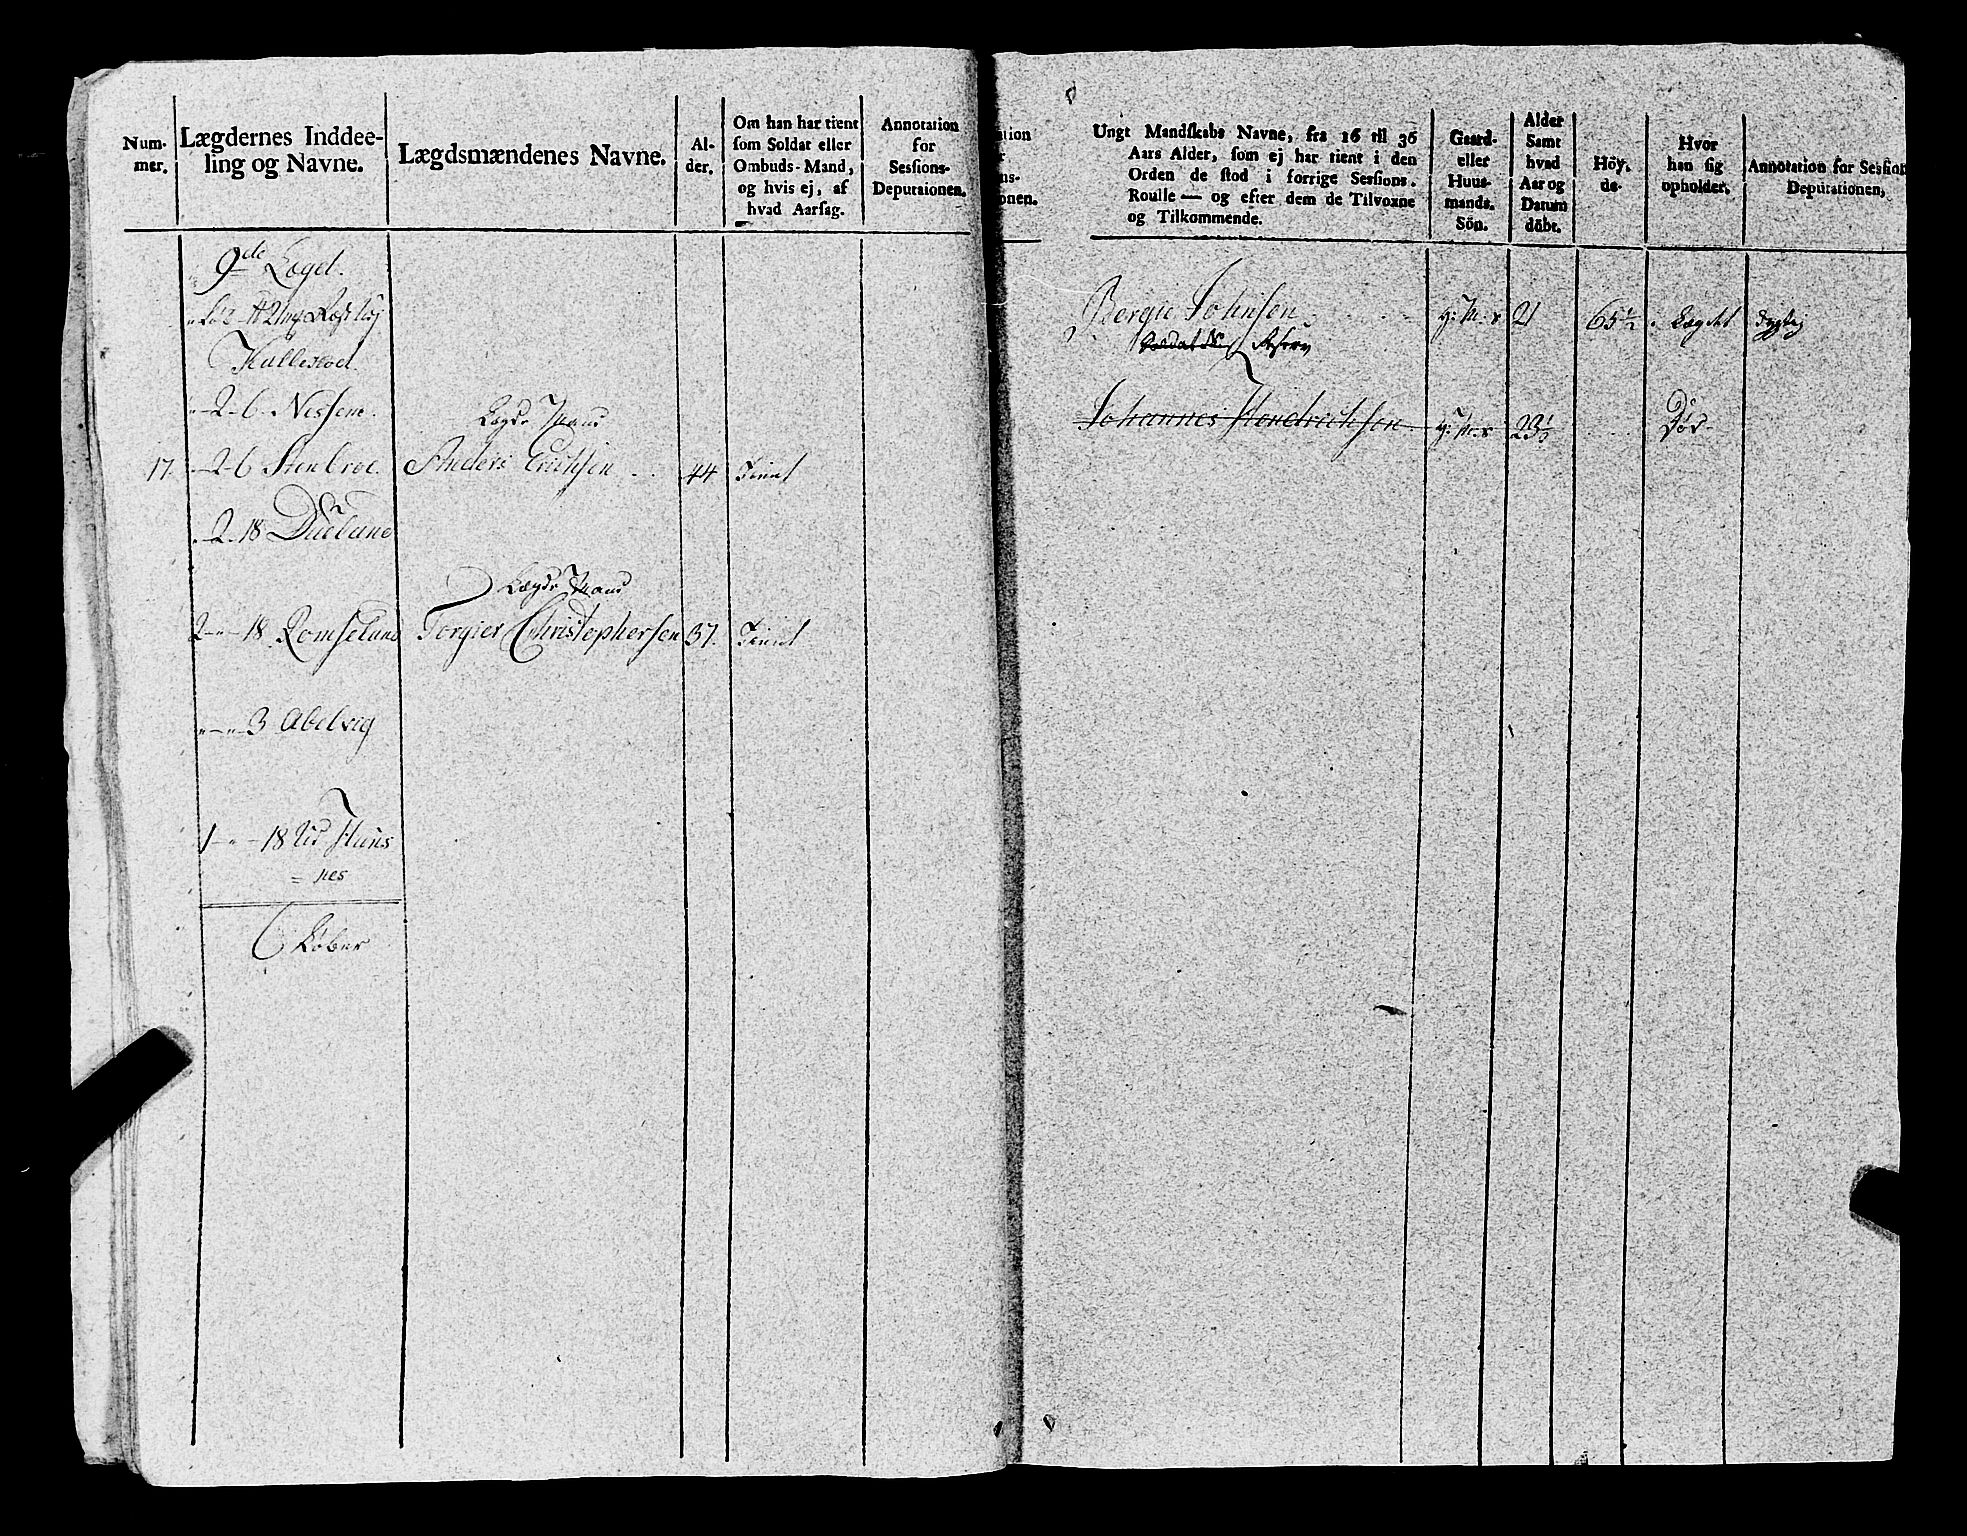 Num-
mer.
Lægdernes Inddee-
ling og Navne.
Lægdsmændenes Navne.
Al-
der.
Om han har tient
som Soldat eller
Ombuds-Mand,
og hvis ej, af
hvad Aarsag.
Annotation
for
Sessions-
Deputationen.
9de Læget.
Kallestod
2 - 6 Nessem.
Lægds Mand
17. 2 - 6 Stenbroe Anders Erichsen 44 Tient
2 - 18 Dueland
Lægds Mand
2 - " - 18 Romseland Torgier Christophersen 37. Tient
" - " - 3 Abelvig
1 - " - 18 Ud Huns
= nes
6 Løber
ation
r
ns-
onen.
Ungt Mandskabs Navne, fra 16 til 36
Aars Alder, som ej har tient i den
Orden de stod i forrige Sessions-
Roulle — og efter dem de Tilvoxne
og Tilkommende.
Gaard-
eller
Huus-
mands-
Sön.
Alder
Samt
hvad
Aar og
Datum
döbt.
Höy-
de-
Hvor
han sig
opholder.
Annotation for Session
Deputationen,
Bergie Johnsen 21 65 1/2 Læget Dygtig
Reserv
Johannes Hendrichsen 23 1/2 Död